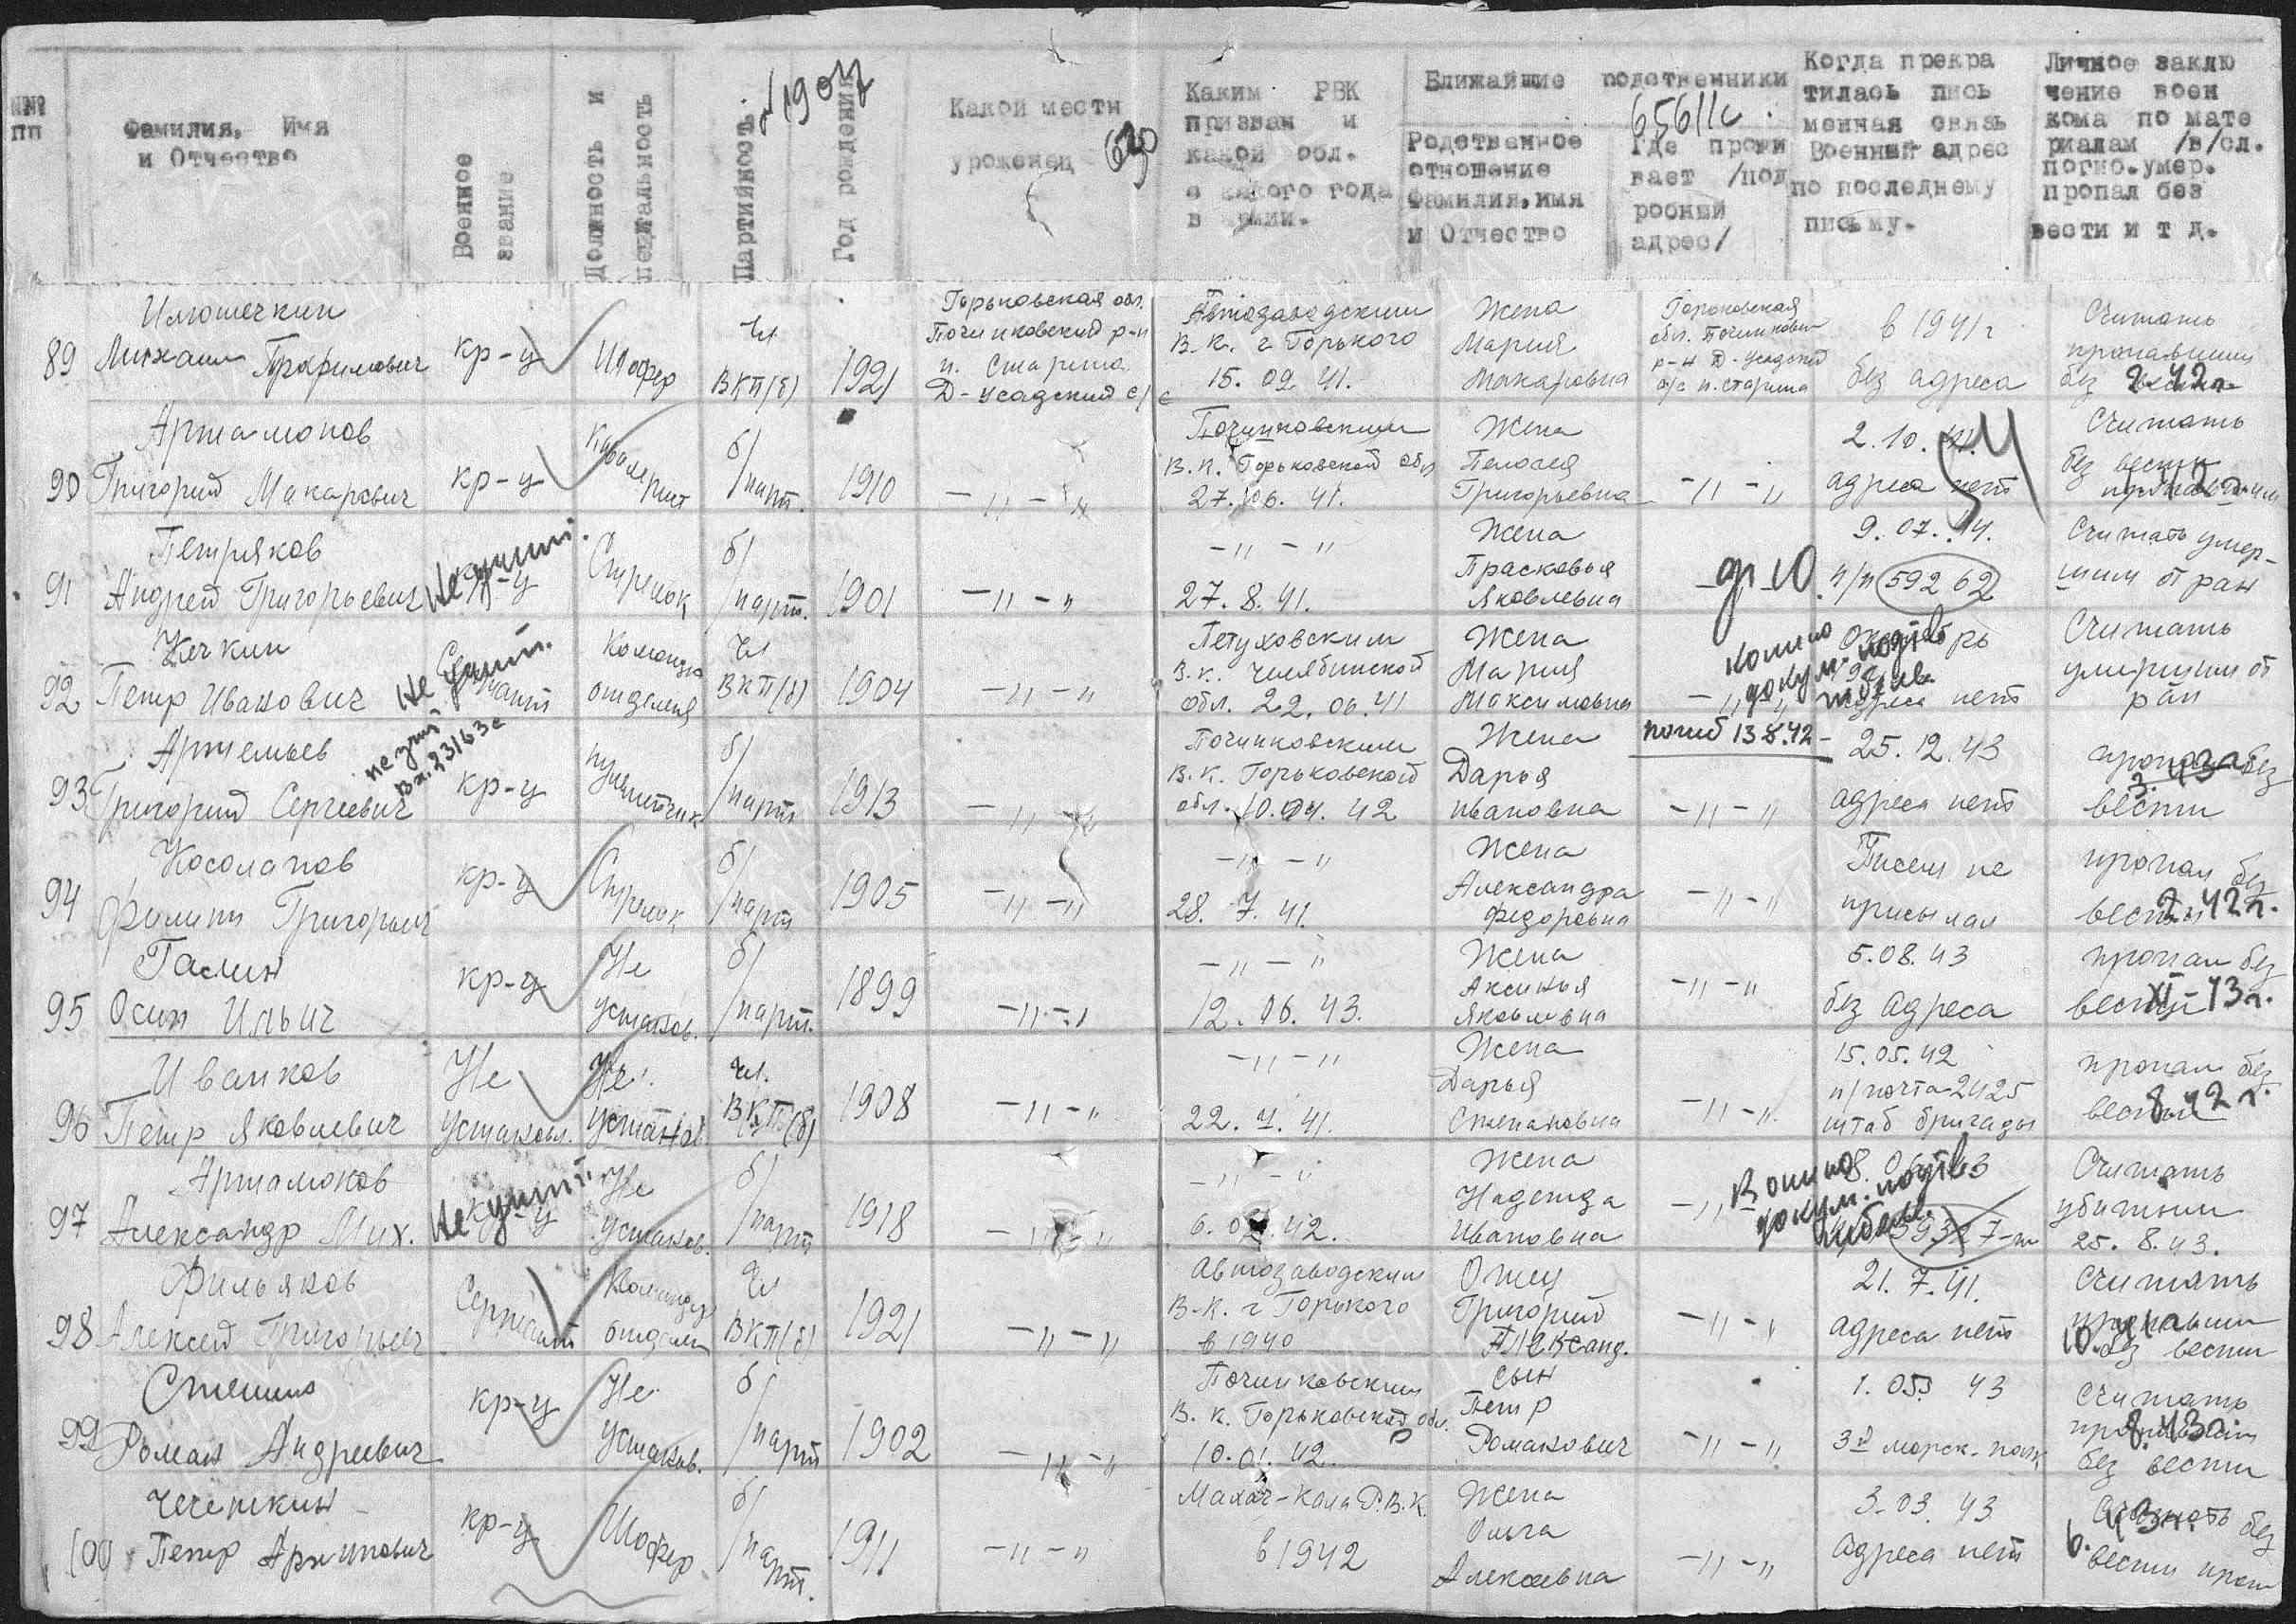 №№ пп
Фамилия, Имя и Отчество
Военное звание
Должность и специальность
Партийность
Год рождения
Какой местн уроженец
Каким РВК призван и какой обл. с какого года в армии.
Ближайшие родственники
Родственное отношение Фамилия, имя и Отчество
Где прожи вает /под робный адрес/
Когда прекра тилась пись менная связь Военный адрес по последнему письму.
Личное заклю чение воен кома по мате риалам /в/сл. погиб. умер. пропал без вести и т д.
65611с
Илюшечкин
89 Михаил Трофимович
кр-ц
Шофер
Чл
ВКП(б)
1921
Горьковская обл.
Починковский р-н
п. Старша
Д-Усадский с/с
Автозаводским
В.К. г Горького
15. 09. 41.
Жена
Мария
Макаровна
Горьковская
обл. Починковск
р-н Д-Усадский
с/с п. Старша
в 1941 г
без адреса
Считать
пропавшим
без вести
Артамонов
90 Григорий Макарович
кр-ц
Кавалерист
б/парт.
1910
-"-"
Починковским
В.К. Горьковской обл
27. 06. 41.
Жена
Пелогея
Григорьевна
-"-"
2. 10. 41.
адреса нет
Считать
без вести
пропавшим
Петряков
91 Андрей Григорьевич
кр-ц
Не учит.
Стрелок
б/парт.
1901
-"-"
-"-"
27. 8. 41.
Жена
Прасковья
Яковлевна
9. 07. 44.
п/п 59262
Считать умер-
шим от ран
Кечкин
92 Петр Иванович
Сержант
Не учит.
Командир
отделения
Чл
ВКП(б)
1904
-"-"
Петуховским
В.К. Челябинской
обл. 22. 06. 41
Жена
Мария
Максимовна
-"-"
Октябрь
адреса нет
Считать
умершим от
ран
Артемьев
93 Григорий Сергеевич
не учит
Вх. 23163с
кр-ц
пулеметчик
б/парт
1913
-"-"
Починковским
В.К. Горьковской
обл. 10. 04. 42
Жена
Дарья
Ивановна
погиб 13.8.42-
-"-"
25. 12. 43
адреса нет
пропал без
вести
Косолапов
94 Филипп Григорьевич
кр-ц
Стрелок
б/парт
1905
-"-"
-"-"
28. 7. 41.
Жена
Александра
Федоровна
-"-"
Писем не
присылал
пропал без
вести
2. 42 г.
Галин
95 Осип Ильич
кр-ц
Не
установ.
б/парт.
1899
-"-"
-"-"
12. 06. 43.
Жена
Аксинья
Яковлевна
-"-"
5. 08. 43
без адреса
пропал без
вести
XI-43 г.
Иванков
96 Петр Яковлевич
Не
установл.
Не
установ.
Чл.
ВКП(б)
1908
-"-"
-"-"
22. 7. 41.
Жена
Дарья
Степановна
-"-"
15. 05. 42
п/почта-2425
штаб бригады
пропал без
вести
8. 42 г.
Артамонов
97 Александр Мих.
кр-ц
Не учит.
Не
установ.
б/парт
1918
-"-"
-"-"
Жена
Надежда
Ивановна
Считать
убитым
25. 8. 43.
Фильяков
98 Алексей Григорьевич
Сержант
Командир
отделен
Чл
ВКП(б)
1921
-"-"
Автозаводским
В-К. г Горького
в 1940
Отец
Григорий
Александ.
-"-"
21. 7. 41.
адреса нет
Считать
пропавшим
без вести
99 Роман Андреевич
кр-ц
Не
установ.
б/парт
1902
-"-"
Починковским
В. К. Горьковской обл.
10. 01. 42.
сын
Петр
Романович
-"-"
Считать
пропавшим
без вести
100 Петр Архипович
кр-ц
Шофер
б/парт.
1911
-"-"
Махач-Кала Р.В.К.
в 1942
Жена
Ольга
Алексеевна
-"-"
3. 03. 43
адреса нет
Считать без
вести проп